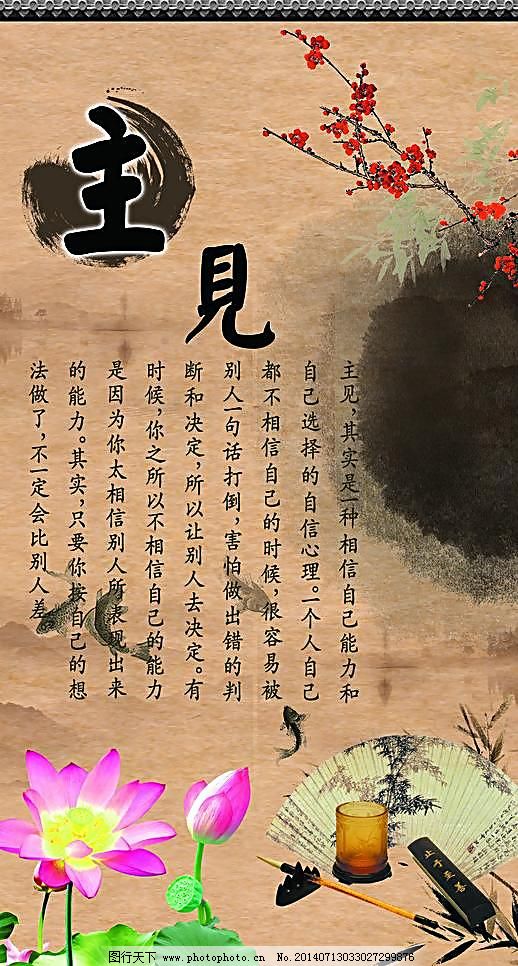 主見
主见，其实是一种相信自己能力和
自己选择的自信心理。一个人自己
都不相信自己的时候，很容易被
别人一句话打倒，害怕做出错的判
断和决定，所以让别人去决定。有
时候，你之所以不相信自己的能力
是因为你太相信别人所表现出来
的能力。其实，只要你按自己的想
法做了，不一定会比别人差。
止于至善
图行天下 www.photophoto.cn No.20140713033027299876